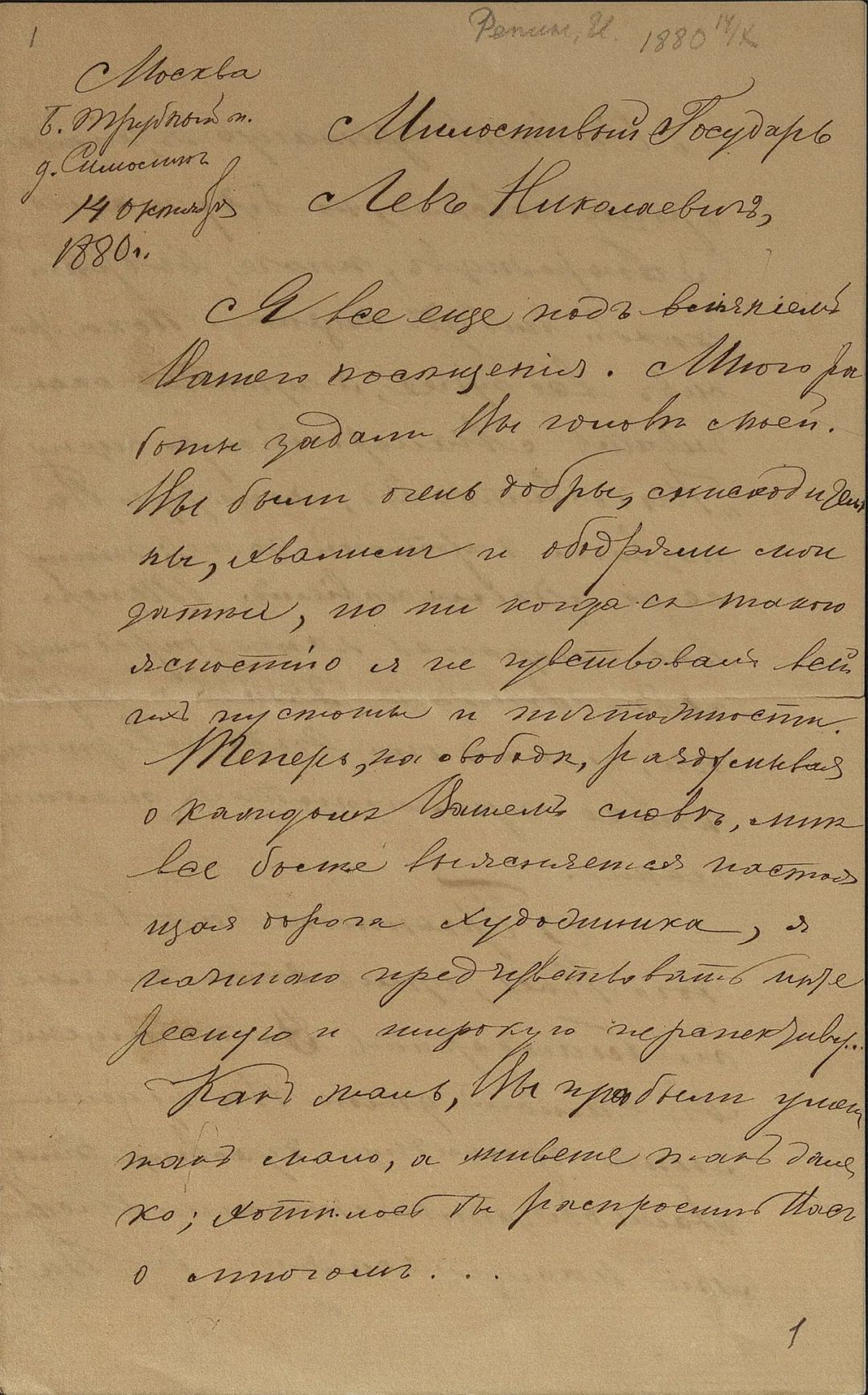 1
Репин, И. 1880 14/X
Москва
Б. Трубный п.
д. Симолинъ
14 октября
1880 г.
Милостивый Государь
Левъ Николаевичъ,
Я все еще подъ влiянiемъ
Вашего посѣщенiя. Много ра
боты задали Вы головѣ моей.
Вы были очень добры, снисходитель
ны, хвалили и ободряли мои
затѣи, но ни когда съ такою
ясностiю я не чувствовалъ всей
ихъ пустоты и ничтожности.
Теперь, на свободѣ, раздумывая
о каждомъ Вашемъ словѣ, мнѣ
все болѣе выясняется настоя
щая дорога художника, я
начинаю предчувствовать инте
ресную и широкую перспективу..
Какъ жаль, Вы пробыли у меня
такъ мало, а живете такъ дале
ко; хотѣлось бы распросить Васъ
о многомъ...
1